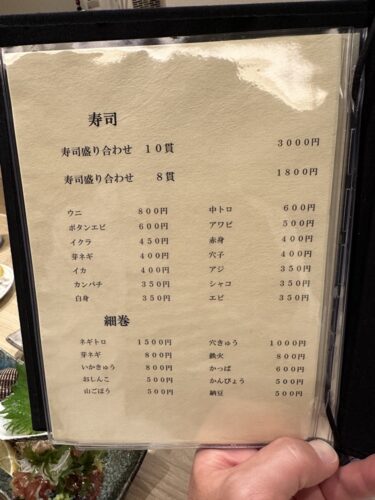 寿司
寿司盛り合わせ 10貫 3000円
寿司盛り合わせ 8貫 1800円
ウニ 800円
ボタンエビ 600円
イクラ 450円
芽ネギ 400円
イカ 400円
カンパチ 350円
白身 350円
中トロ 600円
アワビ 500円
赤身 400円
穴子 400円
アジ 350円
シャコ 350円
エビ 350円
細巻
ネギトロ 1500円
芽ネギ 800円
いかきゅう 800円
おしんこ 500円
山ごぼう 500円
穴きゅう 1000円
鉄火 800円
かっぱ 600円
かんぴょう 500円
納豆 500円